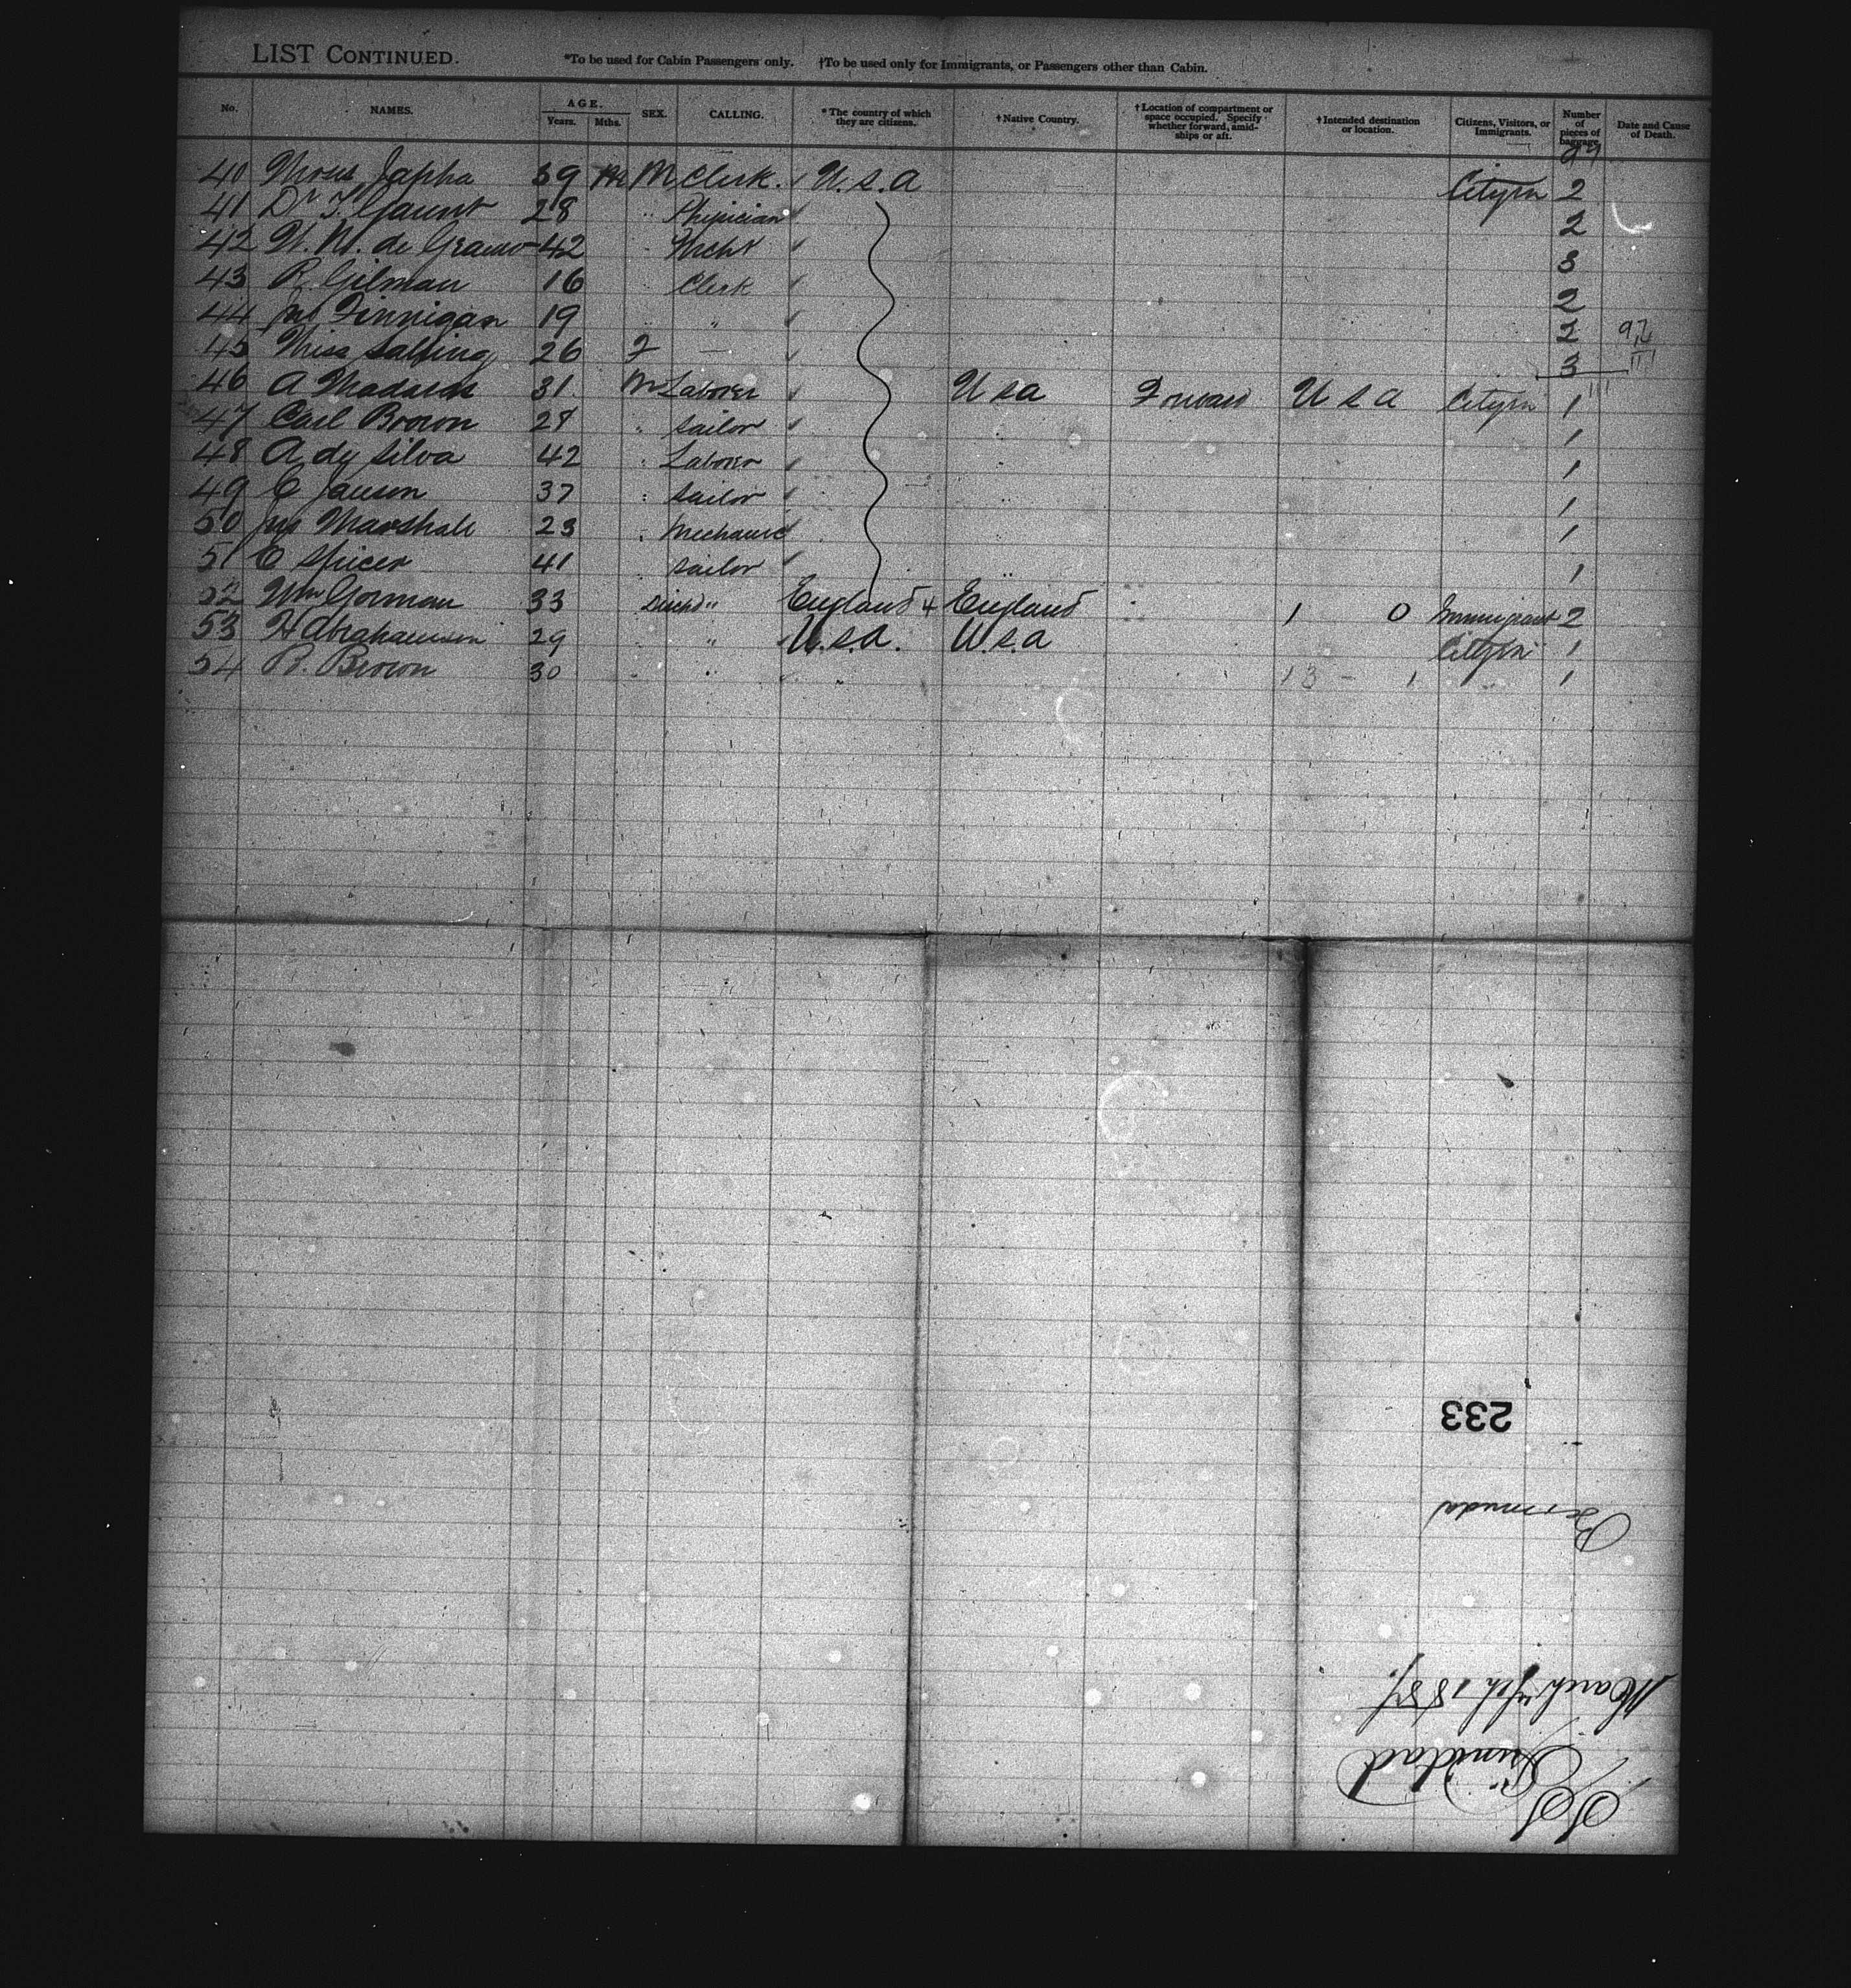 LIST CONTINUED. *To be used for Cabin Passengers only. †To be used only for Immigrants, or Passengers other than Cabin.
No. NAMES. AGE. Years. Mths. SEX. CALLING. *The country of which they are citizens. †Native Country. †Location of compartment or space occupied. Specify whether forward, amidships or aft. †Intended destination or location. Citizens, Visitors, or Immigrants. Number of pieces of baggage. Date and Cause of Death.
40 Japha 39 M Clerk. U.S.A Cityzn 2
41 Dr T. Gaunt 28 " Physician 2
42 de 42 " Mcht 3
43 R. Gilman 16 " Clerk 2
44 Jno Finnigan 19 " " 2
45 Miss 26 F — 3
46 A 31 M Laborer U S A Forward U S A Cityzn 1
47 Carl Brown 28 " Sailor 1
48 A dy Silva 42 " Laborer 1
49 C Janson 37 " Sailor 1
50 Jno Marshall 23 " Mechanic 1
51 C Spicer 41 " Sailor 1
52 Wm Gorman 33 " England England 1 0 Immigrant 2
53 H Abrahamson 29 " " U.S.A. U.S.A Cityzn 1
54 B. Brown 30 " " " 13 - 1 1
233
Bermuda
March 1887.
SS Trinidad